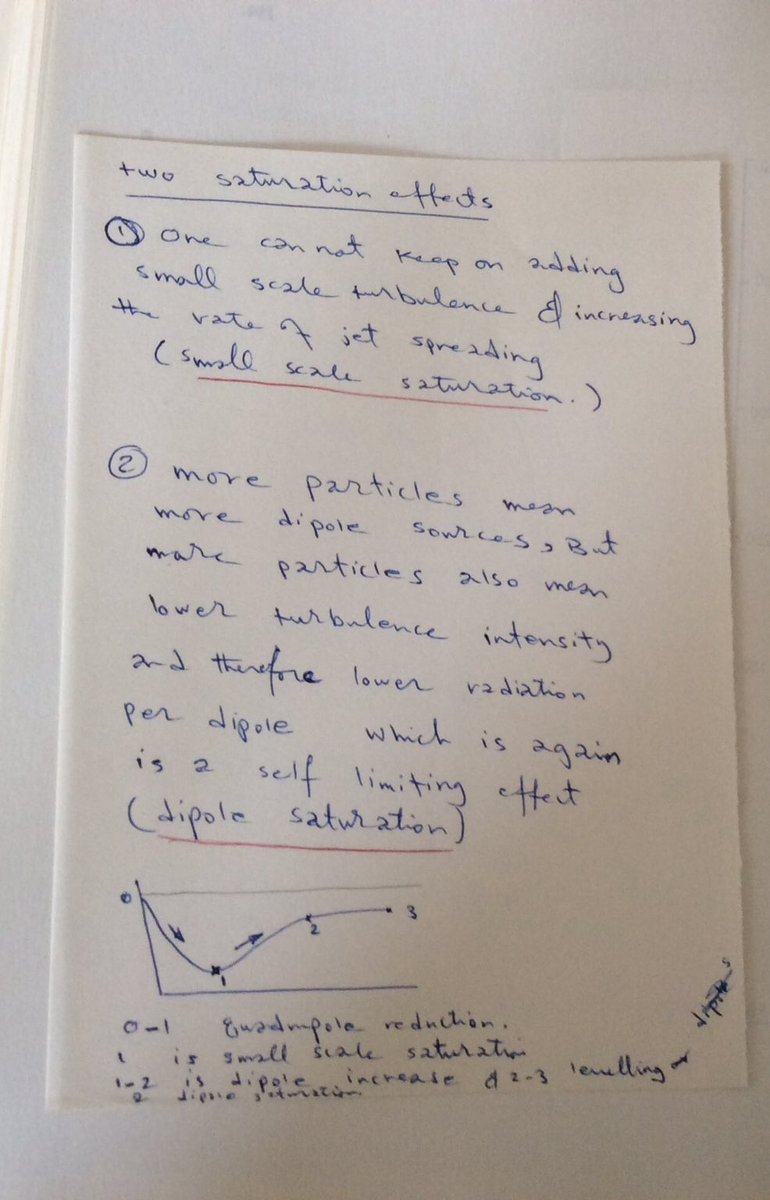 two saturation effects
① One can not keep on adding
small scale turbulence & increasing
the rate of jet spreading
(small scale saturation.)
② more particles mean
more dipole sources, But
more particles also mean
lower turbulence intensity
and therefore lower radiation
per dipole which is again
is a self limiting effect
(dipole saturation)
0
1
2
3
0-1 Quadrupole reduction.
1 is small scale saturation
1-2 is dipole increase & 2-3 levelling
2 dipole saturation